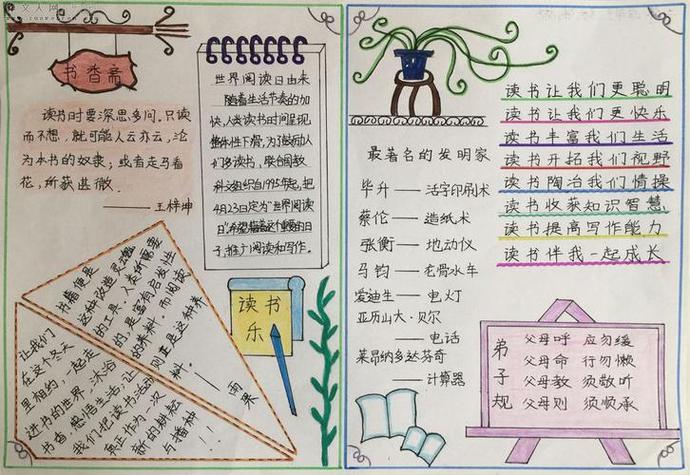 书香斋
读书时要深思多问。只读
而不想，就可能人云亦云，沦
为本书的奴隶；或者走马看
花，所获甚微。
——王梓坤
世界阅读日由来
随着生活节奏的加
快，人类读书时间呈现
整体性下滑，为了鼓励人
们多读书，联合国教
科文组织自1995年起，把
4月23日定为“世界阅读
日”，希望借着这个重要的日
子，推广阅读和写作。
书籍便是
这种改造灵魂
的工具。人类所需要
的，是富有启发性
的养料。而阅读
则正是这种养
料。
——雨果
让我们
在这个冬天
里相约，一起走
进书的世界，沐浴
书香，感悟生活，让
我们把读书活动
真正作为一次
新的耕耘
与播种
!!
读书
乐
最著名的发明家
毕升——活字印刷术
蔡伦——造纸术
张衡——地动仪
马钧——龙骨水车
爱迪生——电灯
亚历山大·贝尔
——电话
莱昂纳多达芬奇
——计算器
读书让我们更聪明
读书让我们更快乐
读书丰富我们生活
读书开拓我们视野
读书陶冶我们情操
读书收获知识智慧
读书提高写作能力
读书伴我一起成长
弟子规
父母呼 应勿缓
父母命 行勿懒
父母教 须敬听
父母则 须顺承